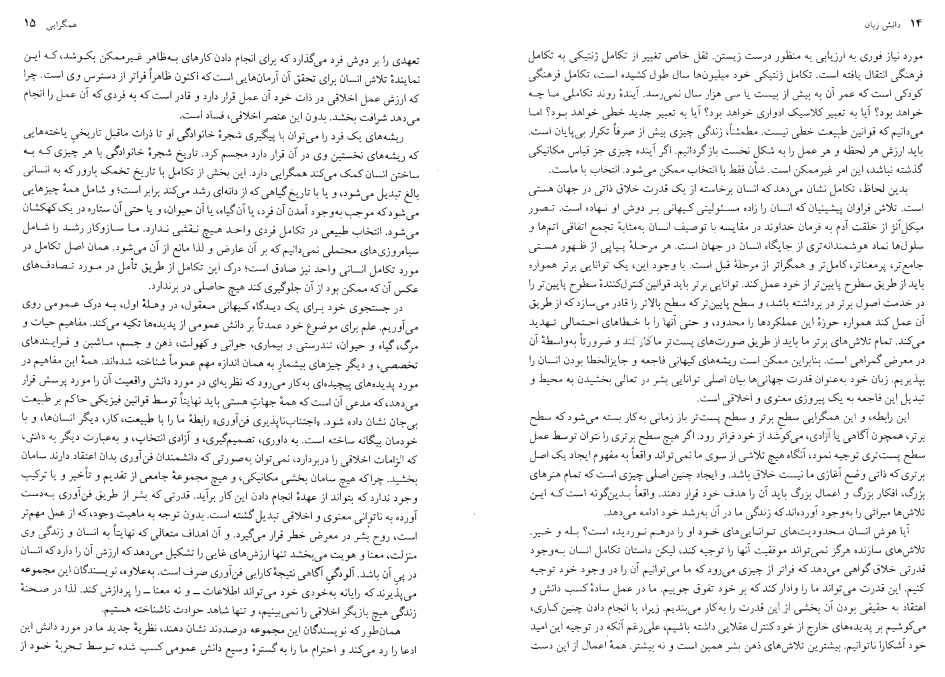 ۱۴ دانش زبان
مورد نیاز فوری به ارزیابی به منظور درست زیستن. ثقل خاص تغییر از تکامل ژنتیکی به تکامل
فرهنگی انتقال یافته است. تکامل ژنتیکی خود میلیون‌ها سال طول کشیده است، تکامل فرهنگی
کودکی است که عمر آن به بیش از بیست یا سی هزار سال نمی‌رسد. آیندهٔ روند تکاملی ما چه
خواهد بود؟ آیا به تعبیر کلاسیک ادواری خواهد بود؟ آیا به تعبیر جدید خطی خواهد بود؟ اما
می‌دانیم که قوانین طبیعت خطی نیست. مطمئناً، زندگی چیزی بیش از صرفاً تکرار بی‌پایان است.
باید ارزش هر لحظه و هر عمل را به شکل نخست بازگردانیم. اگر آینده چیزی جز قیاس مکانیکی
گذشته نباشد، این امر غیرممکن است. شأن فقط با انتخاب ممکن می‌شود. انتخاب با ماست.
بدین لحاظ، تکامل نشان می‌دهد که انسان برخاسته از یک قدرت خلاق ذاتی در جهان هستی
است. تلاش فراوان پیشینیان که انسان را زاده مسئولیتی کیهانی بر دوش او نهاده است. تصور
میکل‌آنژ از خلقت آدم به فرمان خداوند در مقایسه با توصیف انسان به‌مثابهٔ تجمع اتفاقی اتم‌ها و
سلول‌ها نماد هوشمندانه‌تری از جایگاه انسان در جهان است. هر مرحلهٔ پیاپی از ظهور هستی
جامع‌تر، پرمعناتر، کامل‌تر و همگراتر از مرحلهٔ قبل است. با وجود این، یک توانایی برتر همواره
باید از طریق سطوح پایین‌تر از خود عمل کند. توانایی برتر باید قوانین کنترل‌کنندهٔ سطوح پایین‌تر را
در خدمت اصول برتر در برداشته باشد، و سطح پایین‌تر که سطح بالاتر را قادر می‌سازد که از طریق
آن عمل کند همواره حوزهٔ این عملکردها را محدود، و حتی آنها را با خطاهای احتمالی تهدید
می‌کند. تمام تلاش‌های برتر ما باید از طریق صورت‌های پست‌تر ما کار کند و ضرورتاً به‌واسطهٔ آن
در معرض گمراهی است. بنابراین ممکن است ریشه‌های کیهانی فاجعه و جایزالخطا بودن انسان را
بپذیریم. زبان خود به‌عنوان قدرت جهانی‌ها بیان اصلی توانایی بشر در تعالی بخشیدن به محیط و
تبدیل این فاجعه به یک پیروزی معنوی و اخلاقی است.
این رابطه، و این همگرایی سطح برتر و سطح پست‌تر باز زمانی به‌کار بسته می‌شود که سطح
برتر، همچون آگاهی یا آزادی، می‌کوشد از خود فراتر رود. اگر هیچ سطح برتری را نتوان توسط عمل
سطح پست‌تری توجیه نمود، آنگاه هیچ تلاشی از سوی ما نمی‌تواند واقعاً به مفهوم ایجاد یک اصل
برتری که ذاتی وضع آغازی ما نیست خلاق باشد. و ایجاد چنین اصلی چیزی است که تمام هنرهای
بزرگ، افکار بزرگ و اعمال بزرگ باید آن را هدف خود قرار دهند. واقعاً بدین‌گونه است که این
تلاش‌ها میراثی را به‌وجود آورده‌اند که زندگی ما در آن به‌رشد خود ادامه می‌دهد.
آیا هوش انسان محدودیت‌های توانایی‌های خود او را درهم نوردیده است؟ بله و خیر.
تلاش‌های سازنده هرگز نمی‌تواند موفقیت آنها را توجیه کند، لیکن داستان تکامل انسان به‌وجود
قدرتی خلاق گواهی می‌دهد که فراتر از چیزی رود که ما می‌توانیم آن را در وجود خود توجیه
کنیم. این قدرت می‌تواند ما را وادار کند که بر خود تفوق جوییم. ما در عمل سادهٔ کسب دانش و
اعتقاد به حقیقی بودن آن بخشی از این قدرت را به‌کار می‌بندیم. زیرا، با انجام دادن چنین کاری،
می‌کوشیم بر پدیده‌های خارج از خود کنترل عقلایی داشته باشیم، علی‌رغم آنکه در توجیه این امید
خود آشکارا ناتوانیم. بیشترین تلاش‌های ذهن بشر همین است و نه بیشتر. همهٔ اعمال از این دست
همگرایی ۱۵
تعهدی را بر دوش فرد می‌گذارد که برای انجام دادن کارهای به‌ظاهر غیرممکن بکوشد، که این
نمایندهٔ تلاش انسان برای تحقق آن آرمان‌هایی است که اکنون ظاهراً فراتر از دسترس وی است. چرا
که ارزش عمل اخلاقی در ذات خود آن عمل قرار دارد و قادر است که به فردی که آن عمل را انجام
می‌دهد شرافت بخشد. بدون این عنصر اخلاقی، فساد است.
ریشه‌های یک فرد را می‌توان با پیگیری شجرهٔ خانوادگی او تا ذرات ماقبل تاریخی یاخته‌هایی
که ریشه‌های نخستین وی در آن قرار دارد مجسم کرد. تاریخ شجرهٔ خانوادگی با هر چیزی که به
ساختن انسان کمک می‌کند همگرایی دارد. این بخش از تکامل با تاریخ تخمک بارور که به انسانی
بالغ تبدیل می‌شود، و یا با تاریخ گیاهی که از دانه‌ای رشد می‌کند برابر است؛ و شامل همهٔ چیزهایی
می‌شود که موجب به‌وجود آمدن آن فرد، یا آن گیاه، یا آن حیوان، و یا حتی آن ستاره در یک کهکشان
می‌شود. انتخاب طبیعی در تکامل فردی واحد هیچ نقشی ندارد. ما سازوکار رشد را شامل
سیاه‌روزی‌های محتملی نمی‌دانیم که بر آن عارض و لذا مانع از آن می‌شود. همان اصل تکامل در
مورد تکامل انسانی واحد نیز صادق است؛ درک این تکامل از طریق تأمل در مورد تصادف‌های
عکس آن که ممکن بود از آن جلوگیری کند هیچ حاصلی در برندارد.
در جستجوی خود برای یک دیدگاه کیهانی معقول، در وهلهٔ اول، به درک عمومی روی
می‌آوریم. علم برای موضوع خود عمدتاً بر دانش عمومی از پدیده‌ها تکیه می‌کند. مفاهیم حیات و
مرگ، گیاه و حیوان، تندرستی و بیماری، جوانی و کهولت، ذهن و جسم، ماشین و فرایندهای
تخصصی، و دیگر چیزهای بیشمار به همان اندازه مهم عموماً شناخته شده‌اند. همهٔ این مفاهیم در
مورد پدیده‌های پیچیده‌ای به‌کار می‌رود که نظریه‌ای در مورد دانش واقعیت آن را مورد پرسش قرار
می‌دهد، که مدعی آن است که همهٔ جهات هستی باید نهایتاً توسط قوانین فیزیکی حاکم بر طبیعت
بی‌جان نشان داده شود. «اجتناب‌ناپذیری فن‌آوری» رابطهٔ ما را با طبیعت، کار، دیگر انسان‌ها، و با
خودمان بیگانه ساخته است. به داوری، تصمیم‌گیری، و آزادی انتخاب، و به‌عبارت دیگر به دانش،
که الزامات اخلاقی را دربردارد، نمی‌توان به‌صورتی که دانشمندان فن‌آوری بدان اعتقاد دارند سامان
بخشید. چراکه هیچ سامان بخشی مکانیکی، و هیچ مجموعهٔ جامعی از تقدیم و تأخیر و یا ترکیب
وجود ندارد که بتواند از عهدهٔ انجام دادن این کار برآید. قدرتی که بشر از طریق فن‌آوری به‌دست
آورده به ناتوانی معنوی و اخلاقی تبدیل گشته است. بدون توجه به ماهیت وجود، که از عمل مهم‌تر
است، روح بشر در معرض خطر قرار می‌گیرد. و آن اهداف متعالی که نهایتاً به انسان و زندگی وی
منزلت، معنا و هویت می‌بخشد تنها ارزش‌های غایی را تشکیل می‌دهد که ارزش آن را دارد که انسان
در پی آن باشد. آلودگی آگاهی نتیجهٔ کارایی فن‌آوری صرف است. به‌علاوه، نویسندگان این مجموعه
می‌پذیرند که رایانه به‌خودی خود می‌تواند اطلاعات ــ و نه معنا ــ را پردازش کند. لذا در صحنهٔ
زندگی هیچ بازیگر اخلاقی را نمی‌بینیم، و تنها شاهد حوادث ناشناخته هستیم.
همان‌طور که نویسندگان این مجموعه درصددند نشان دهند، نظریهٔ جدید ما در مورد دانش این
ادعا را رد می‌کند و احترام ما را به گسترهٔ وسیع دانش عمومی کسب شده توسط تجربهٔ خود از